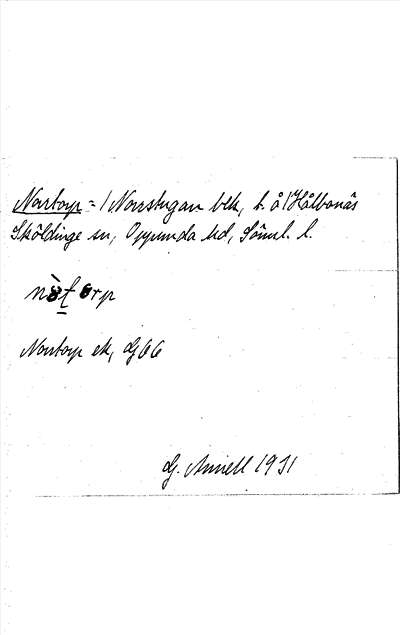 Nortorp = / Norrstugan bek, t. å / Hålbonäs
Sköldinge sn, Oppunda hd, Söml. l.
Nortorp ek, G 66
G. Annell 1931